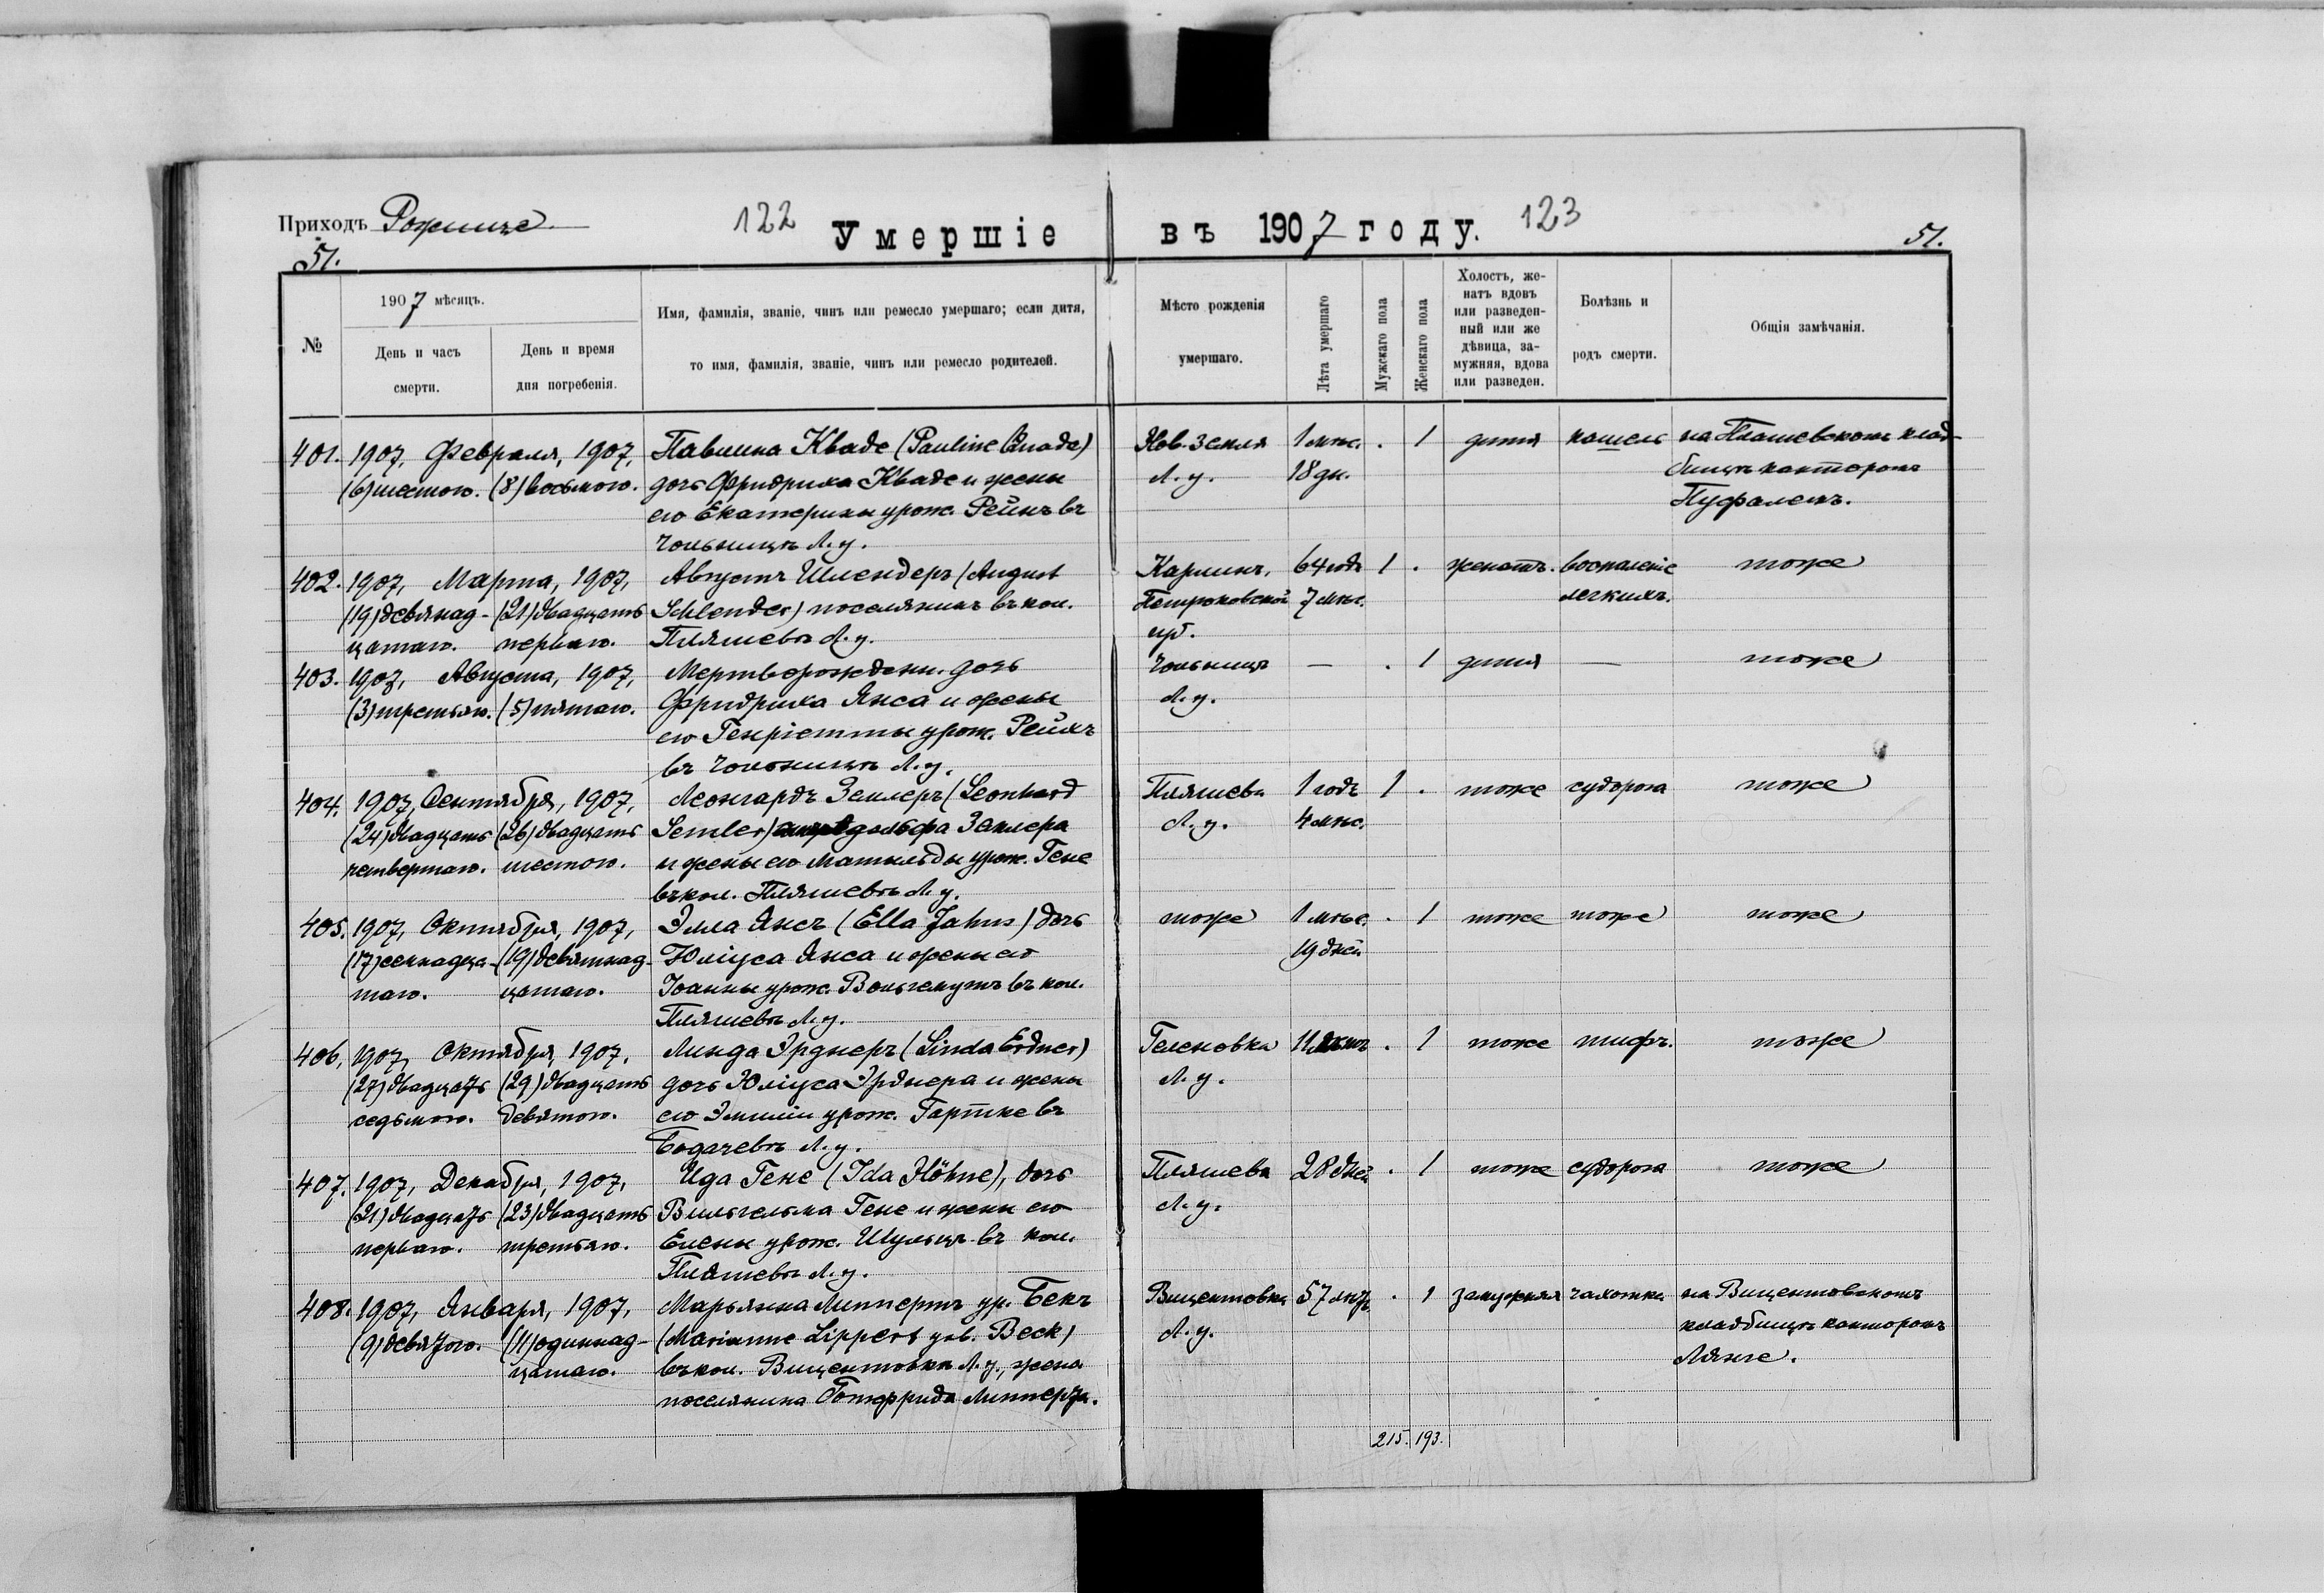 Приходъ Рожище.
122
Умершіе
въ 1907 году.
123
51.
51.
№
1907 мѣсяцъ.
День и часъ
смерти.
День и время
дня погребенія.
Имя, фамилія, званіе, чинъ или ремесло умершаго; если дитя,
то имя, фамилія, званіе, чинъ или ремесло родителей.
Мѣсто рожденія
умершаго.
Лѣта умершаго
Мужскаго пола
Женскаго пола
Холостъ, же-
натъ вдовъ
или разведен-
ный или же
дѣвица, за-
мужняя, вдова
или разведен.
Болѣзнь и
родъ смерти.
Общія замѣчанія.
401. 1907, Февраля, 1907, Павлина Кваде (Pauline Quade) Нов. Земля 1 мѣс. . 1 дитя кашель на Пляшевскомъ клад-
(6) шестого. (8) восьмого. дочь Фридриха Кваде и жены Л. у. 18 дн. бищѣ канторомъ
его Екатерины урож. Рейнъ въ Пуфалемъ.
Чольницѣ Л. у.
402. 1907, Марта, 1907, Августъ Шлендеръ (August Карлинъ, 64 годъ 1 . женатъ. воспаленіе тоже
(19) девянад- (21) двадцать Schlender) поселянинъ въ кол. Петроковской 7 мѣс. легкихъ.
цатаго. перваго. Пляшевѣ Л. у. губ.
403. 1907, Августа, 1907, Мертворожденн. дочь Чольница — . 1 дитя — тоже
(3) третьяго. (5) пятаго. Фридриха Янса и жены Л. у.
его Генріетты урож. Рейхъ
въ Чольницѣ Л. у.
404. 1907, Сентября, 1907, Леонгардъ Землеръ (Leonhard Пляшева 1 годъ 1 . тоже судорога тоже
(24) двадцать (26) двадцать Semler) дольфа Землера Л. у. 4 мѣс.
четвертаго. шестого. и жены его Матильды урож. Гене
въ кол. Пляшевѣ Л. у.
405. 1907, Октября, 1907, Элла Янсъ (Ella Jahns) дочь тоже 1 мѣс. . 1 тоже тоже тоже
(17) семнадца- (19) девятнад- Юліуса Янса и жены его 19 дней
таго. цатаго. Іоанны урож. Вольгемутъ въ кол.
Пляшевѣ Л. у.
406. 1907, Октября, 1907, Линда Эрднеръ (Linda Erdner) Геленовка 11 лѣтъ . 1 тоже тифъ. тоже
(27) двадцать (29) двадцать дочь Юліуса Эрднера и жены Л. у.
седьмого. девятого. его Эмиліи урож. Гартке въ
Богачевѣ Л. у.
407. 1907, Декабря, 1907, Ида Гене (Ida Höhne), дочь Пляшева 28 дней . 1 тоже судорога тоже
(21) двадцать (23) двадцать Вильгельма Гене и жены его Л. у.
перваго. третьяго. Елены урож. Шульцъ въ кол.
Пляшевѣ Л. у.
408. 1907, Января, 1907, Марьянна Липпертъ ур. Бекъ Вицентовка 57 лѣтъ . 1 замужняя чахотка на Вицентовскомъ
(9) девятого. (11) одиннад- (Marianne Lippert geb. Beck) Л. у. кладбищѣ канторомъ
цатаго. въ кол. Вицентовка Л. у., жена Лянге.
поселянина Готфрида Липперта.
215. 193.